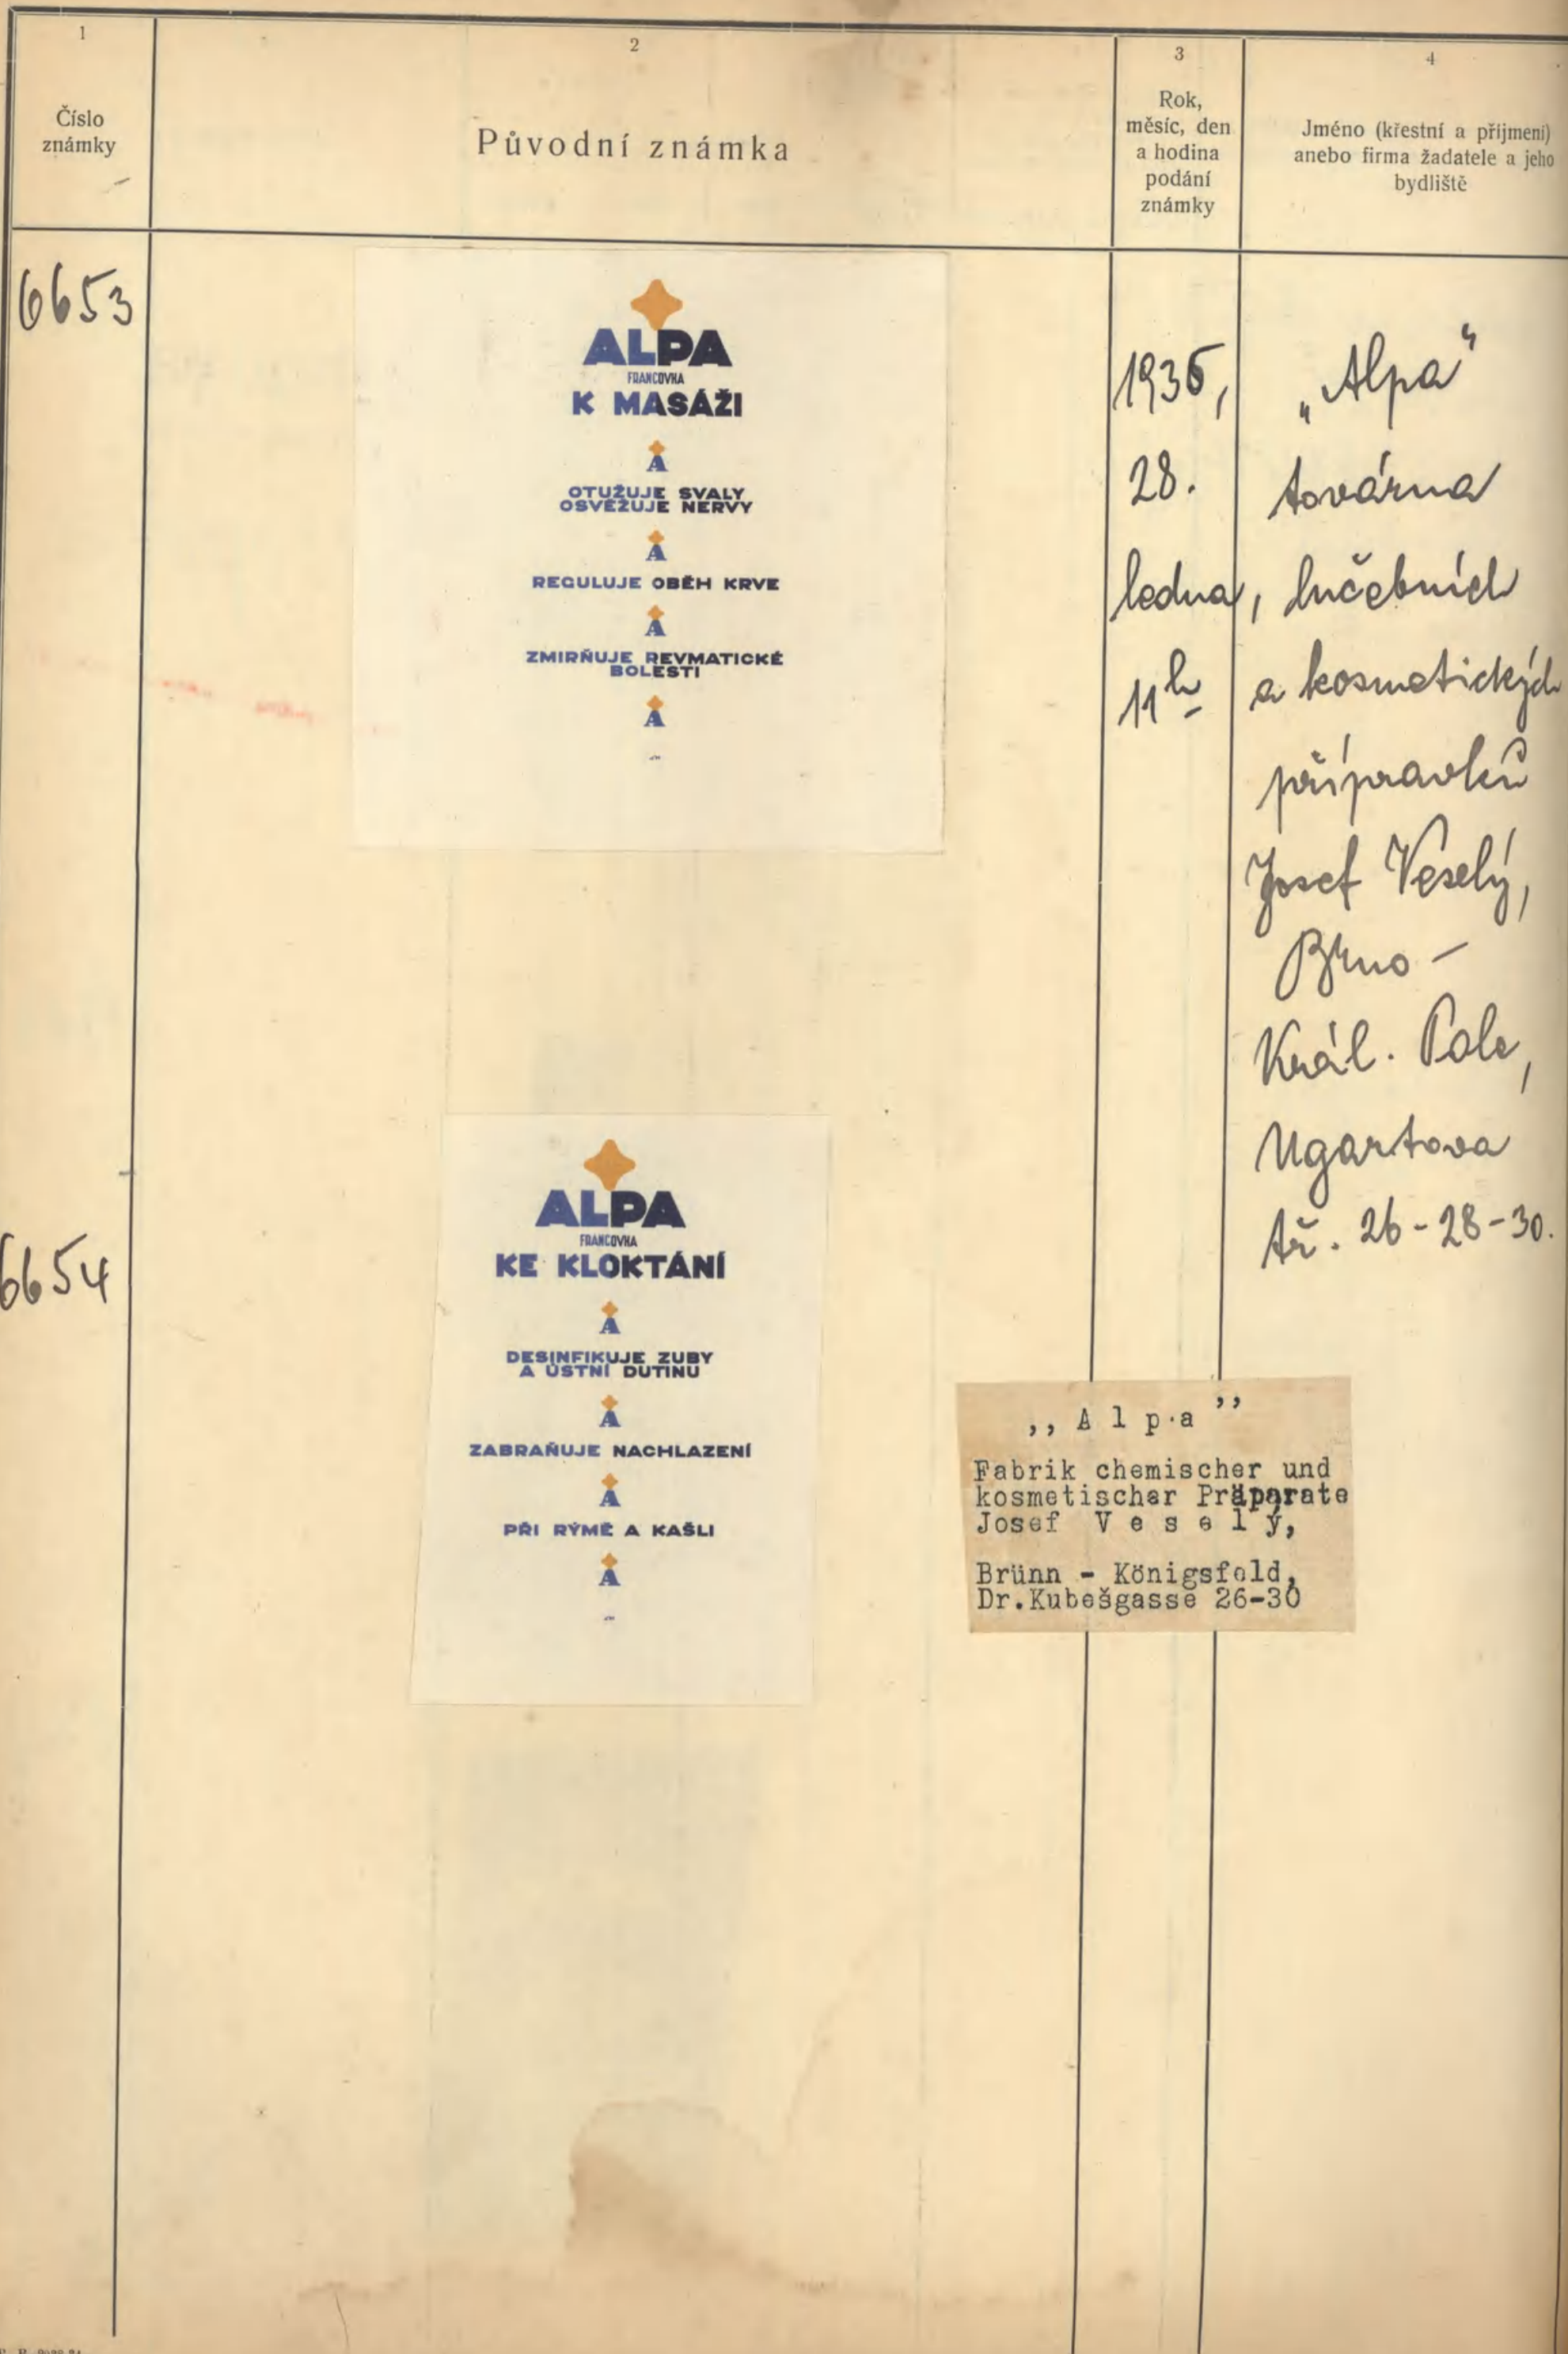 1
2
3
4
Číslo
známky
Původní známka
Rok,
měsíc, den
a hodina
podání
známky
Jméno (křestní a příjmení)
anebo firma žadatele a jeho
bydliště
6653
ALPA
FRANCOVKA
K MASÁŽI
A
OTUŽUJE SVALY
OSVĚŽUJE NERVY
A
REGULUJE OBĚH KRVE
A
ZMIRŇUJE REVMATICKÉ
BOLESTI
A
1936,
28.
ledna,
11h
„Alpa“
továrna
lučebních
a kosmetických
přípravků
Josef Veselý,
Brno -
Král. Pole,
Ugartova
tř. 26-28-30.
6654
ALPA
FRANCOVKA
KE KLOKTÁNÍ
A
DESINFIKUJE ZUBY
A ÚSTNÍ DUTINU
A
ZABRAŇUJE NACHLAZENÍ
A
PŘI RÝMĚ A KAŠLI
A
,,Alpa’’
Fabrik chemischer und
kosmetischer Präparate
Josef Veselý,
Brünn - Königsfeld,
Dr.Kubešgasse 26-30